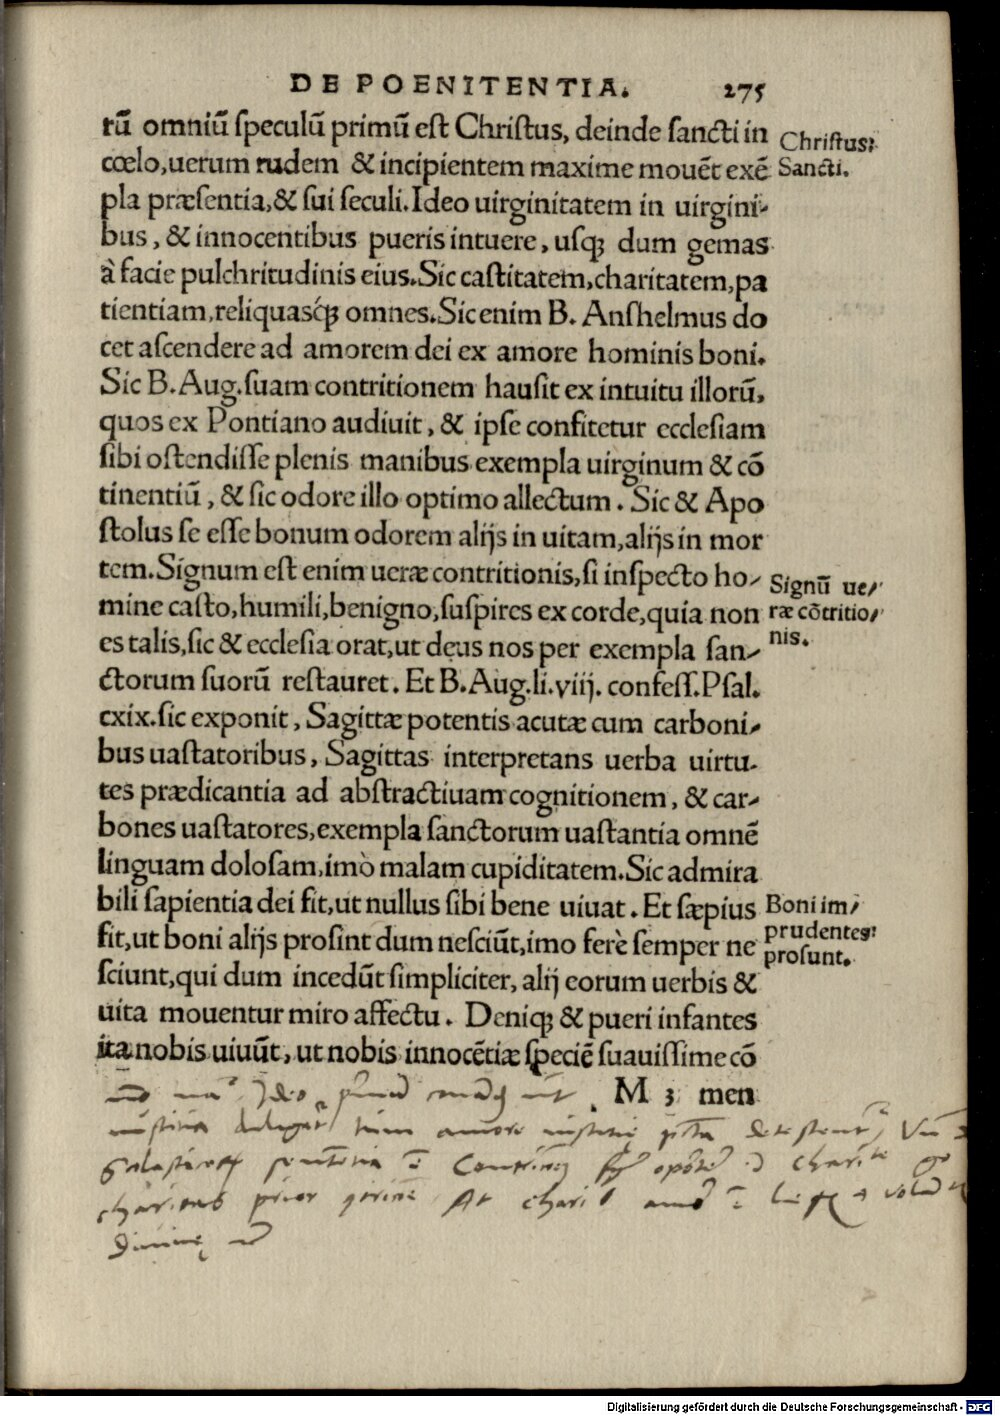 DE POENITENTIA. 275
rū omniū ſpeculū primū eſt Chriſtus, deinde ſancti in
cœlo, uerum rudem & incipientem maxime mouēt exē
pla præſentia, & ſui ſeculi. Ideo uirginitatem in uirgini-
bus, & innocentibus pueris intuere, uſq; dum gemas
à facie pulchritudinis eius. Sic caſtitatem, charitatem, pa
tientiam, reliquasq́; omnes. Sic enim B. Anſhelmus do
cet aſcendere ad amorem dei ex amore hominis boni.
Sic B. Aug. ſuam contritionem hauſit ex intuitu illorū,
quos ex Pontiano audiuit, & ipſe confitetur eccleſiam
ſibi oſtendiſſe plenis manibus exempla uirginum & cō
tinentiū, & ſic odore illo optimo allectum. Sic & Apo
ſtolus ſe eſſe bonum odorem alijs in uitam, alijs in mor
tem. Signum eſt enim ueræ contritionis, ſi inſpecto ho-
mine caſto, humili, benigno, ſuſpires ex corde, quia non
es talis, ſic & eccleſia orat, ut deus nos per exempla ſan-
ctorum ſuorū reſtauret. Et B. Aug. li. viij. confeſſ. Pſal.
cxix. ſic exponit, Sagittæ potentis acutæ cum carboni-
bus uaſtatoribus, Sagittas interpretans uerba uirtu-
tes prædicantia ad abſtractiuam cognitionem, & car-
bones uaſtatores, exempla ſanctorum uaſtantia omnē
linguam doloſam, imò malam cupiditatem. Sic admira
bili ſapientia dei fit, ut nullus ſibi bene uiuat. Et ſæpius
fit, ut boni alijs proſint dum neſciūt, imo ferè ſemper ne
ſciunt, qui dum incedūt ſimpliciter, alij eorum uerbis &
uita mouentur miro affectu. Deniq; & pueri infantes
ita nobis uiuūt, ut nobis innocētiæ ſpeciē ſuauiſſime cō
M 3 men
Chriſtus:
Sancti.
Signū ue-
ræ cōtritio-
nis.
Boni im-
prudentes:
proſunt.
amore
prior
Digitalisierung gefördert durch die Deutsche Forschungsgemeinschaft - DFG